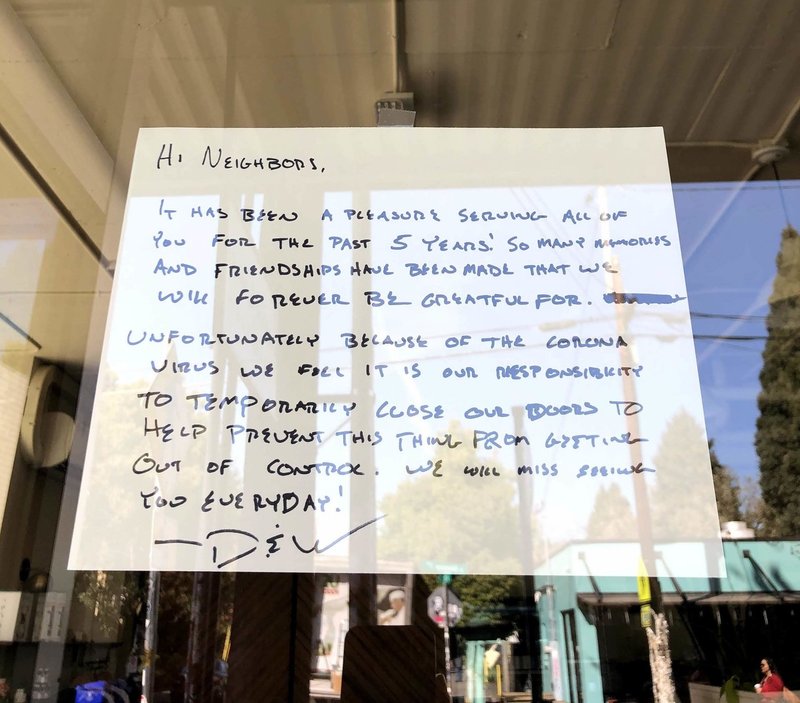 HI NEIGHBORS,
IT HAS BEEN A PLEASURE SERVING ALL OF
YOU FOR THE PAST 5 YEARS! SO MANY MEMORIES
AND FRIENDSHIPS HAVE BEEN MADE THAT WE
WILL FOREVER BE GREATFUL FOR.
UNFORTUNATELY BECAUSE OF THE CORONA
VIRUS WE FEEL IT IS OUR RESPONSIBILITY
TO TEMPORARILY CLOSE OUR DOORS TO
HELP PREVENT THIS THING FROM GETTING
OUT OF CONTROL. WE WILL MISS SEEING
YOU EVERYDAY!
—D & W